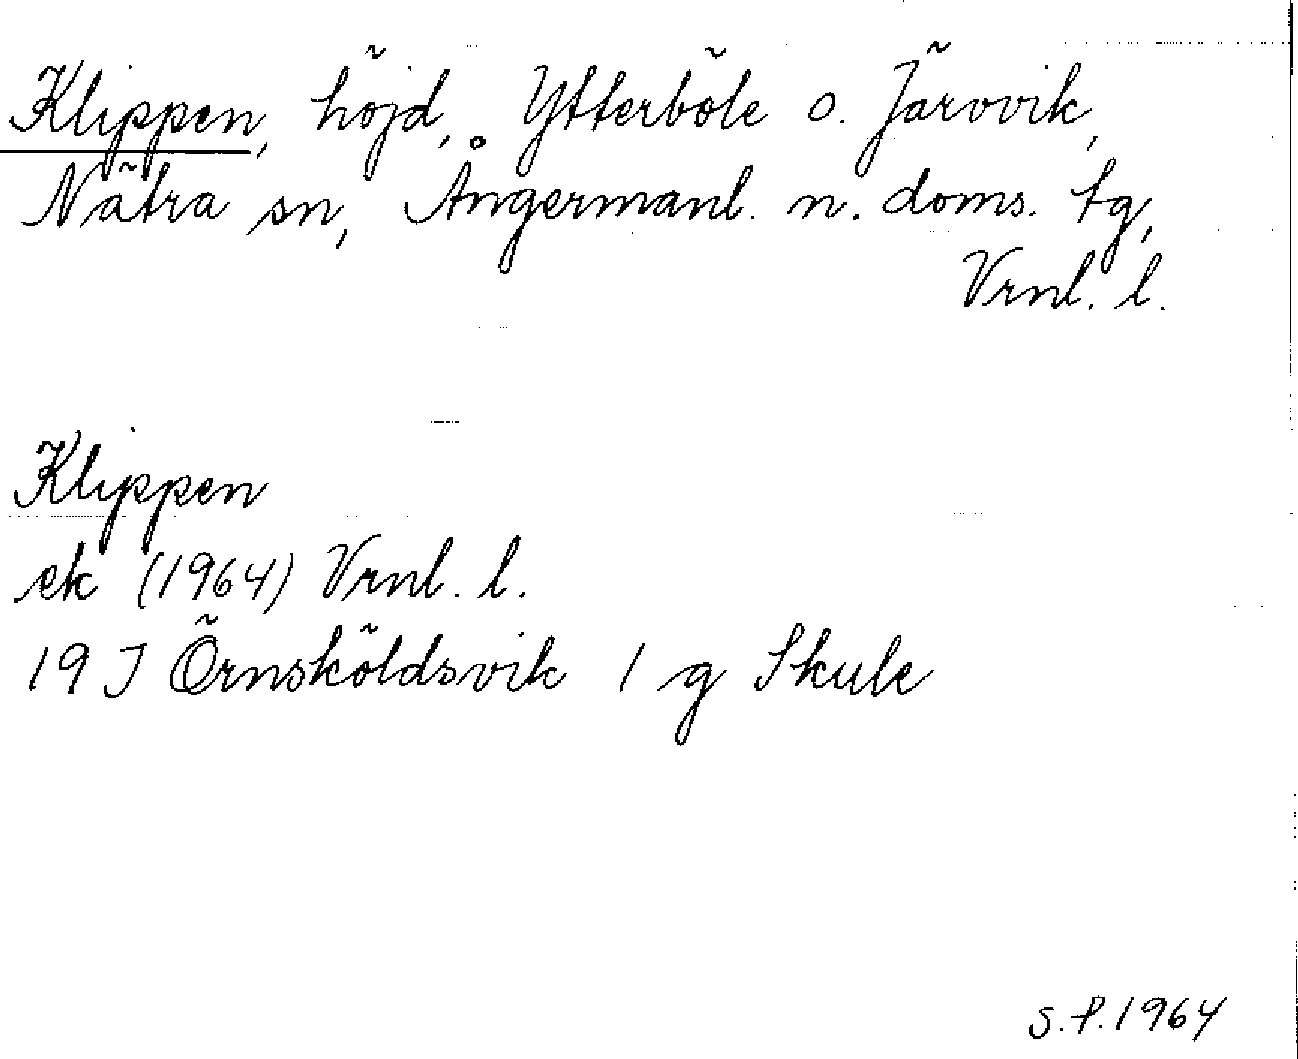 Klippen, höjd, Ytterböle o. Järvvik,
Nätra sn, Ångermanl. n. doms. tg,
Vrnl. l.
Klippen
ek (1964) Vrnl. l.
19 J Örnsköldsvik 1 g Skule
S.P. 1964